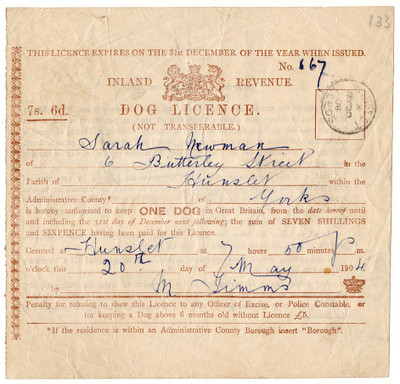 133
THIS LICENCE EXPIRES ON THE 31st DECEMBER OF THE YEAR WHEN ISSUED.
No. 667
INLAND REVENUE.
7s. 6d. DOG LICENCE.
(NOT TRANSFERABLE.)
Sarah Newman
of 6 Butterley Street in the
Parish of Hunslet within the
Administrative County* of Yorks
is hereby authorised to keep ONE DOG in Great Britain, from the date hereof until
and including the 31st day of December next following; the sum of SEVEN SHILLINGS
AND SIXPENCE having been paid for this Licence.
Granted at Hunslet at 7 hours 50 p m.
o'clock this 20th day of May 1904
by M Timms
Penalty for refusing to show this Licence to any Officer of Excise, or Police Constable, or
for keeping a Dog above 6 months old without Licence £5.
*If the residence is within an Administrative County Borough insert "Borough".